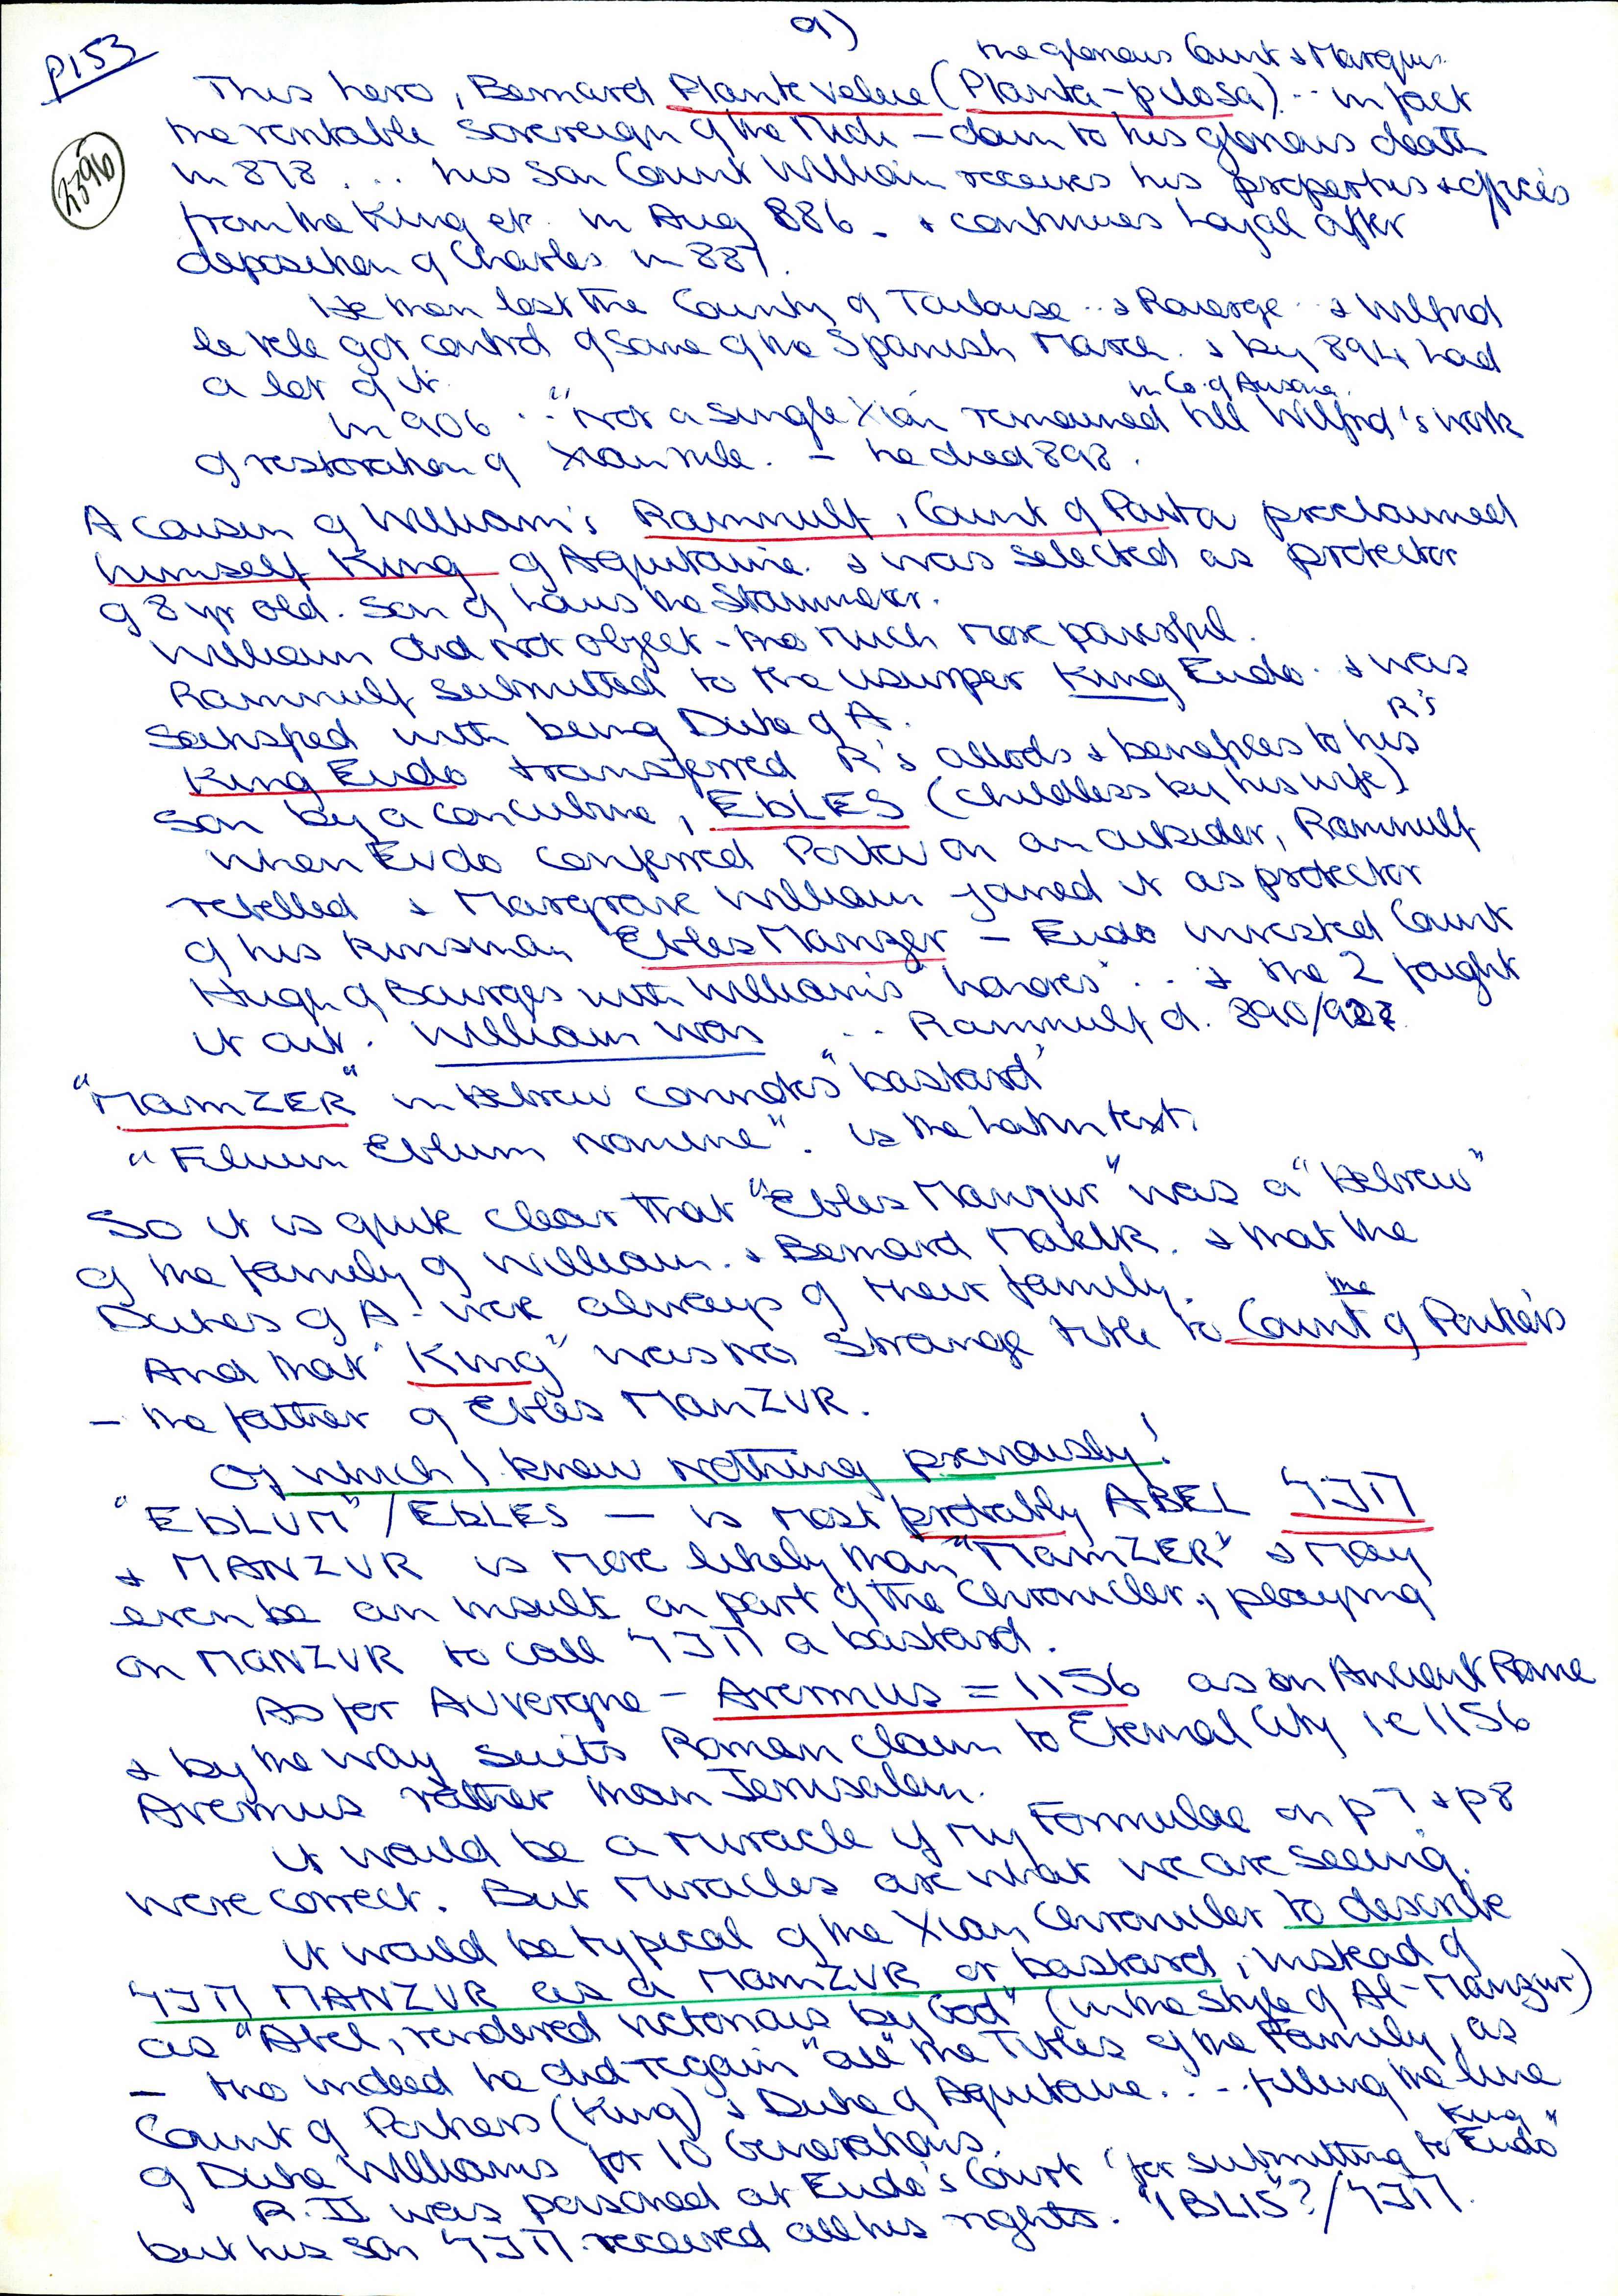 9)
P153
the glorious Count & Marquis
This hero, Bernard Plantevelue (Planta-pilosa) .. in fact
the veritable Sovereign of the Midi — down to his glorious death
in 878 ... his son Count William receives his properties & offices
from the King etc. in Aug 886 - & continues loyal after
deposition of Charles in 887.
He then lost the County of Toulouse .. & Rouerge .. & Wilfrid
le velu got control of some of the Spanish March. & by 894 had
a lot of it.
in Co. of Ausona.
In 906 .. "Not a single Xian remained till Wilfrid's work
of restoration of Xian rule. — he died 898.
A cousin of William's Ramnulf, Count of Poitou proclaimed
himself King of Aquitaine. & was selected as protector
of 8 yr old. son of Louis the Stammerer.
William did not object - tho much more powerful.
Ramnulf submitted to the usurper King Eudo. & was
satisfied with being Duke of A.
R's
King Eudo transferred R's allods & benefices to his
son by a concubine, EbLES (childless by his wife)
When Eudo conferred Poitou on an outsider, Ramnulf
rebelled & Margrave William joined it as protector
of his kinsman Ebles Manzer — Eudo invested Count
Hugh of Bourges with William's "honores" .. & the 2 fought
it out. William was .. Ramnulf d. 890/92
"MamZER" in Hebrew connotes "bastard"
"Filium Eblum nomine". is the Latin text.
So it is quite clear that "Ebles Manzur" was a "Hebrew"
of the family of William. & Bernard Makhir. & that the
Dukes of A. were always of their family.
And that "King" was no strange title to the Count of Poitiers
— the father of Ebles MANZUR.
Of which I knew nothing previously!
"EbLUM"/EbLES — is most probably ABEL לבה
& MANZUR is more likely than "MamZER" & may
even be an insult on part of the Chronicler, playing
on MANZUR to call לבה a bastard.
As for Auvergne — Avernus = 1156 as in Ancient Rome
& by the way suits Roman claim to Eternal City ie 1156
Avernus rather than Jerusalem.
It would be a miracle if my Formulae on p7 & p8
were correct. But miracles are what we are seeing.
It would be typical of the Xian Chronicler to describe
לבה MANZUR as a MamZUR or bastard, instead of
as "Abel, rendered victorious by God" (in the style of Al-Manzur)
— tho indeed he did regain "all" the Titles of the Family, as
Count of Poitiers (King) & Duke of Aquitaine... filling the line
of Duke Williams for 10 Generations.
R. II was poisoned at Eudo's Court "for submitting to King Eudo"
but his son לבה received all his rights. "IBLIS"?/לבה.